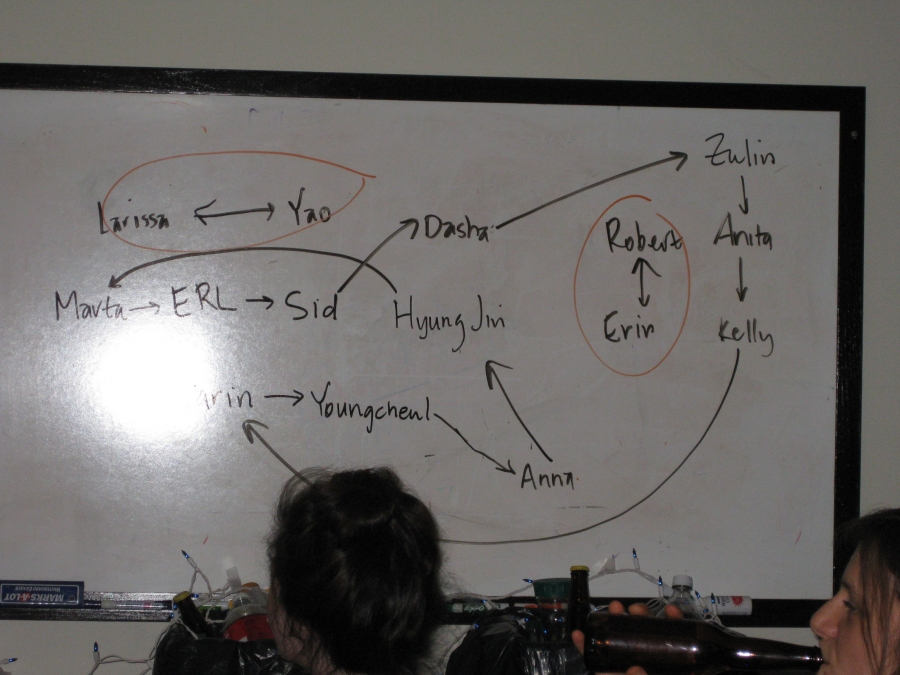 Zulin
Larissa ↔ Yao
Dasha
Robert
Anita
Marta → ERL → Sid
HyungJin
Erin
Kelly
→ Youngcheul
Anna
MARKS-A-LOT